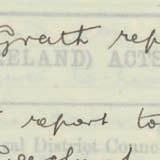 Grath rep
RELAND) ACTS
report to
al District Counc